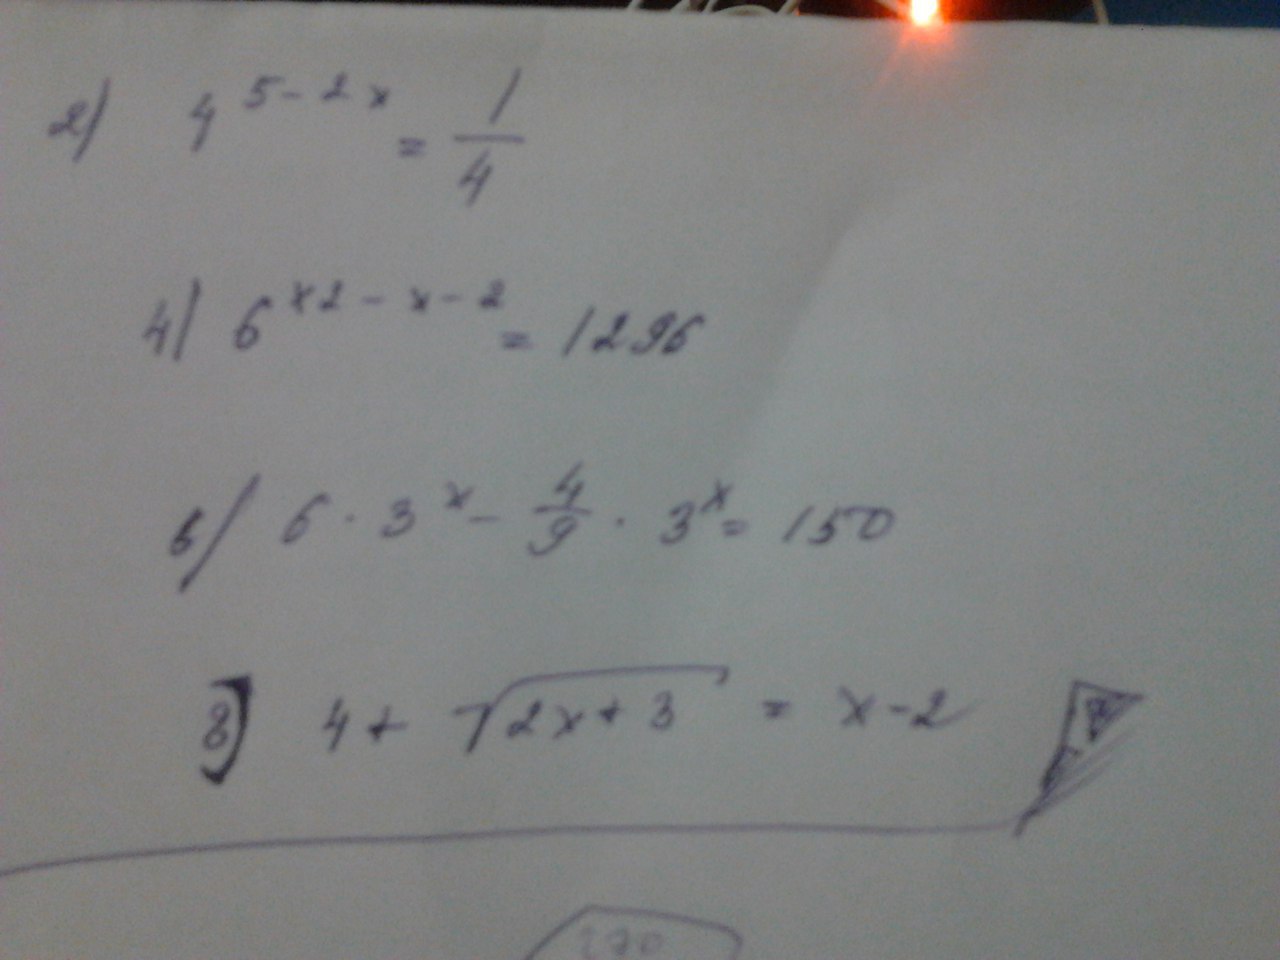 2) 4^{5-2x} = 1/4
4) 6^{x2-x-2} = 1296
6) 6 · 3^x - 4/9 · 3^x = 150
8) 4 + √(2x+3) = x-2